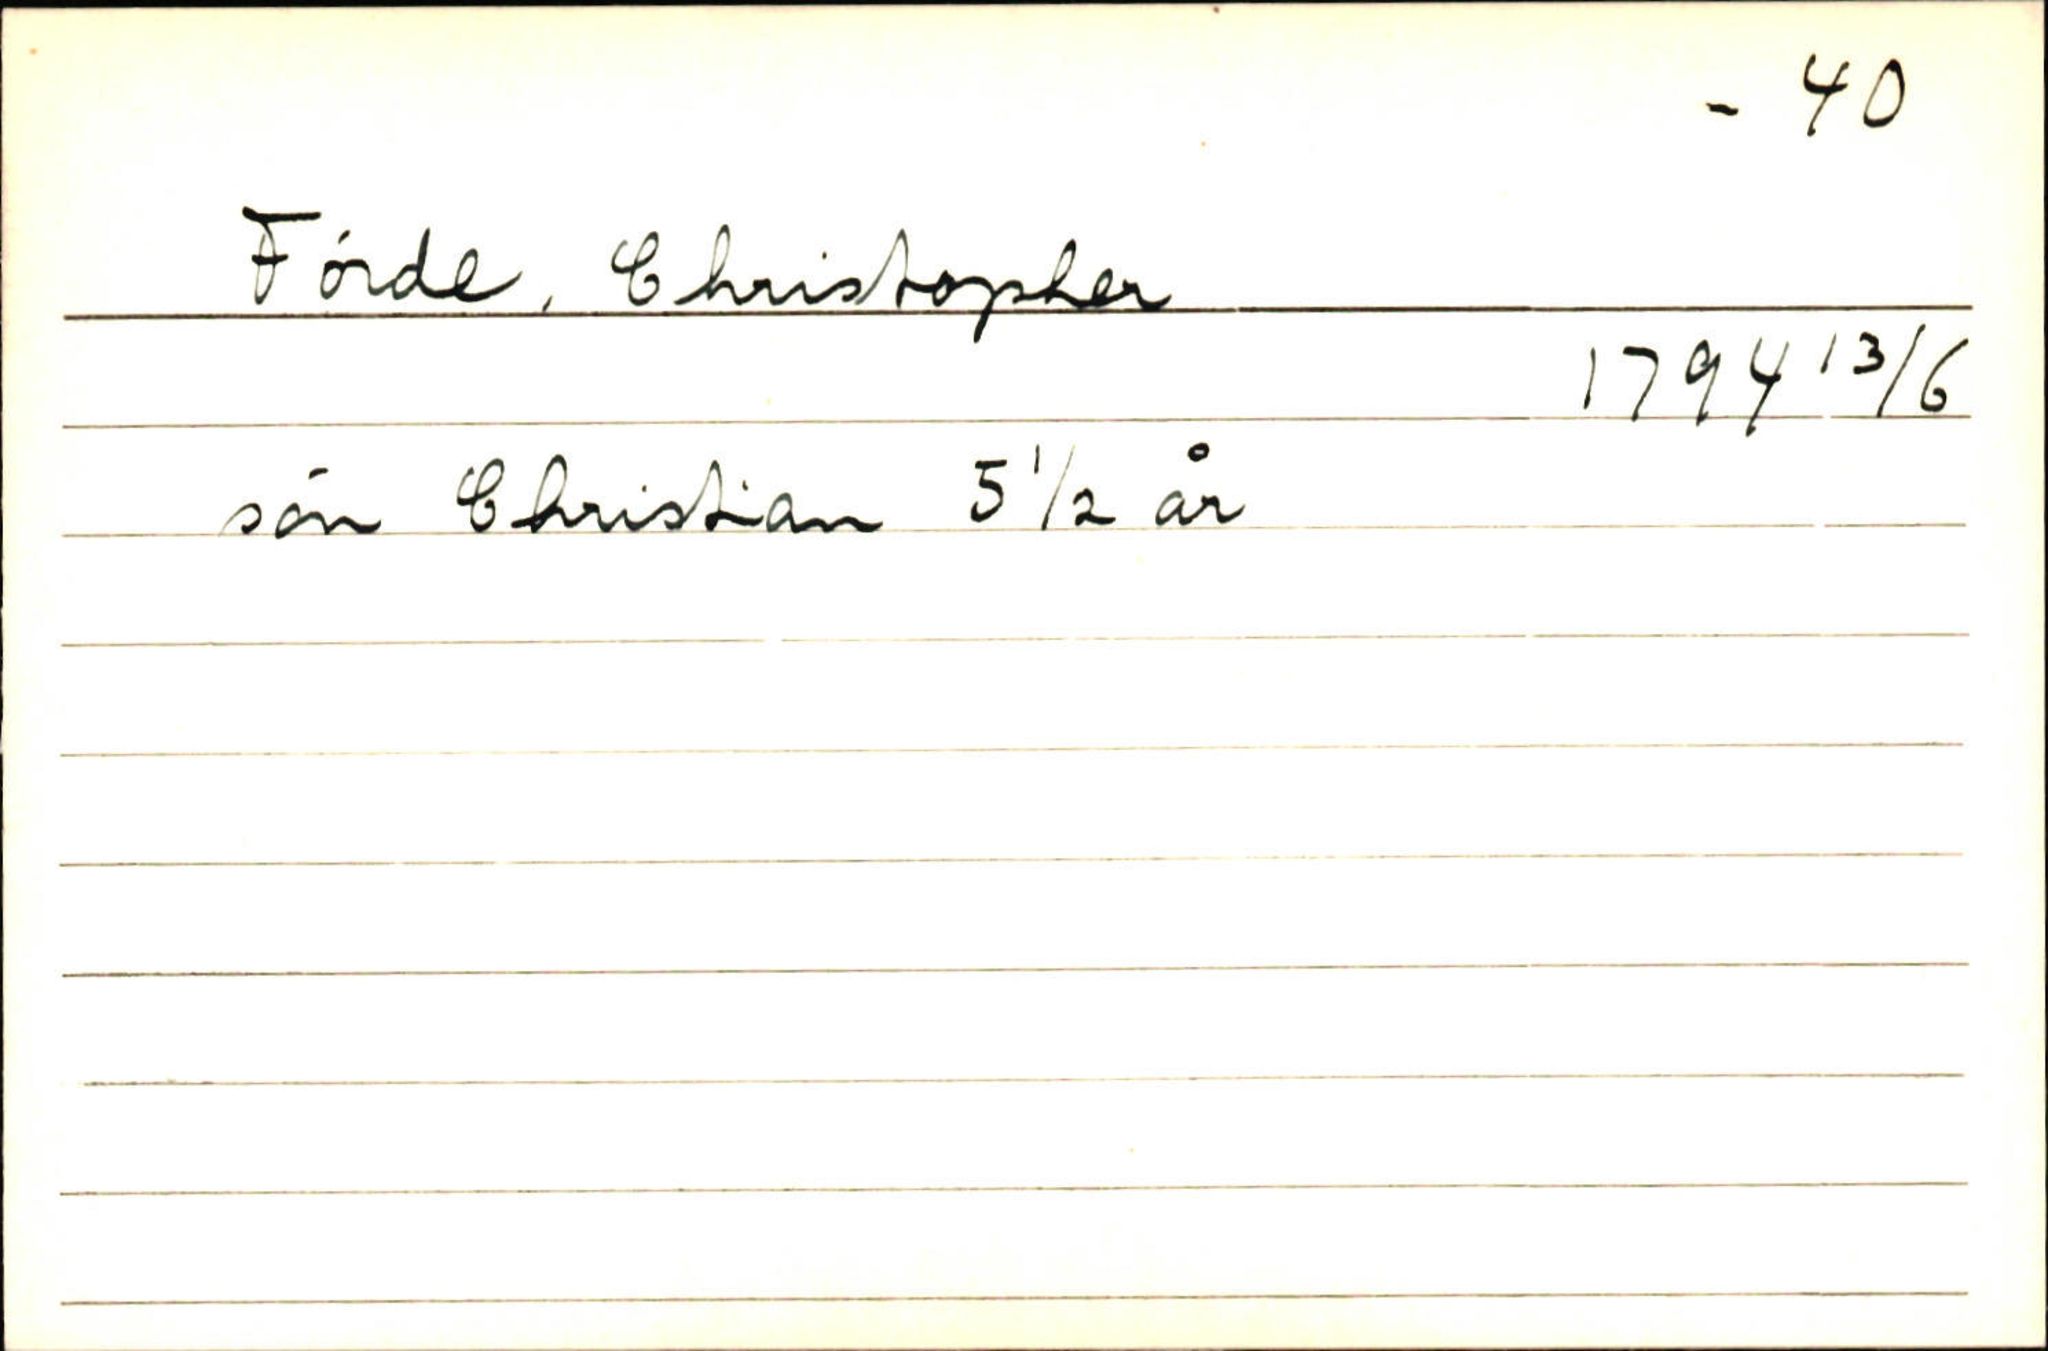 - 40
Förde, Christopher
1794 13/6
sön Christian 5 1/2 år